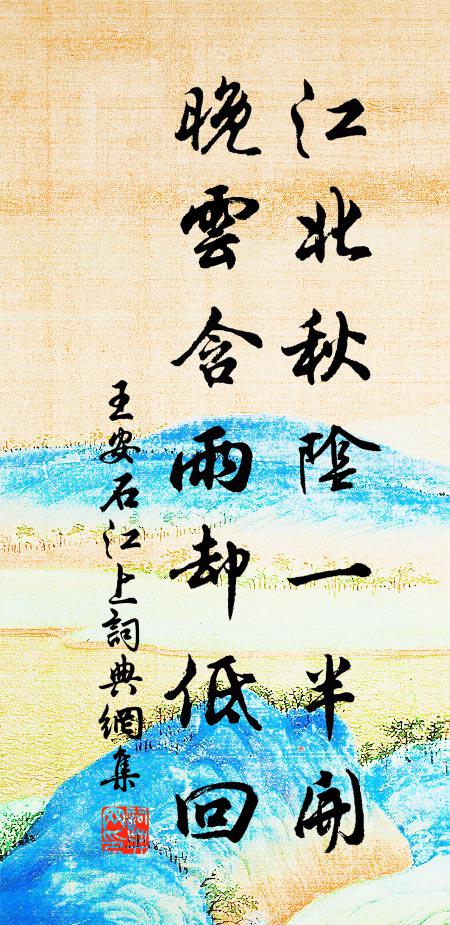 江北秋陰一半開
晚雲含雨却低回
王安石江上詞典網集